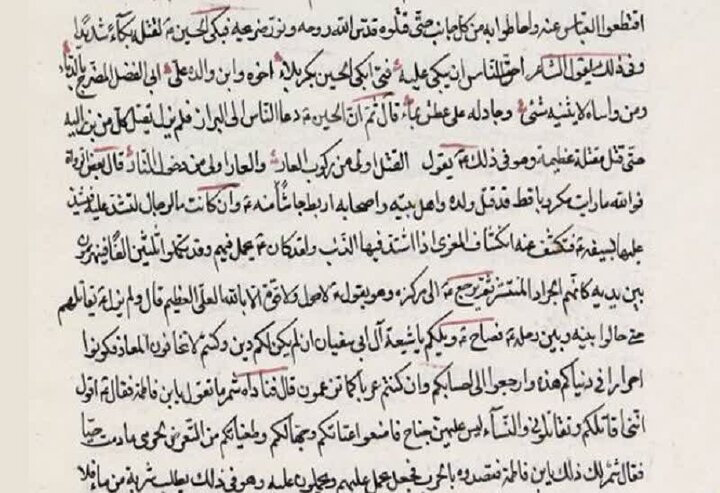 اقتطعوا العباس عنه واحاطوا به من كل جانب حتى قتلوه قدس الله روحه ونور ضريحه فبكى الحسين ع لقتله بكاء شديدا
وفى ذلك يقول الشاعر احق الناس ان يبكى عليه فتى ابكى الحسين بكربلاء اخوه وابن والده على ابو الفضل المضرج بالدماء
ومن واساه لا يثنيه شئ وجادله على عطش بماء قال ثم ان الحسين ع دعا الناس الى البراز فلم يزل يقتل كل من برز اليه
حتى قتل مقتلة عظيمة وهو فى ذلك ع يقول القتل اولى من ركوب العار والعار اولى من دخول النار قال بعض الرواة
فوالله ما رايت مكثورا قط قد قتل ولده واهل بيته واصحابه اربط جاشا منه ع وان كانت الرجال لتشد عليه فيشد
عليها بسيفه ع فتكشف عنه انكشاف المعزى اذا اشتد فيها الذئب ولقد كان ع يحمل فيهم وقد تكملوا ثلثين الفا فيهزمون
بين يديه كانهم الجراد المنتشر ثم يرجع ع الى مركزه وهو يقول ع لا حول ولا قوة الا بالله العلى العظيم قال ولم يزل ع يقاتلهم
حتى حالوا بينه وبين رحله ع فصاح ع ويلكم يا شيعة آل ابى سفيان ان لم يكن لكم دين وكنتم لا تخافون المعاد فكونوا
احرارا فى دنياكم هذه وارجعوا الى احسابكم وان كنتم عربا كما تزعمون قال فناداه شمر ما تقول يابن فاطمة فقال ع اقول
اننى اقاتلكم وتقاتلونى والنساء ليس عليهن جناح فامنعوا عتاتكم وجهالكم وطغاتكم من التعرض لحرمى ما دمت حيا
فقال شمر لك ذلك يابن فاطمة فقصدوه بالحرب فجعل يحمل عليهم ويحملون عليه وهو فى ذلك يطلب شربة من ماء فلا